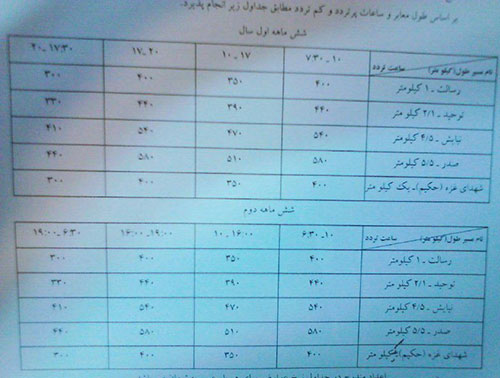 بر اساس طول معابر و ساعات پرتردد و کم تردد مطابق جداول زیر انجام پذیرد.
شش ماهه اول سال
نام مسیر طول(کیلو متر) ساعت تردد ۱۰ ـ ۷:۳۰ ۱۷ ـ ۱۰ ۲۰ ـ ۱۷ ۱۷:۳۰ ـ ۲۰
رسالت ـ ۱ کیلومتر ۴۰۰ ۳۵۰ ۴۰۰ ۳۰۰
توحید ـ ۲/۱ کیلومتر ۴۴۰ ۳۹۰ ۴۴۰ ۳۳۰
نیایش ـ ۴/۵ کیلومتر ۵۴۰ ۴۷۰ ۵۴۰ ۴۱۰
صدر ـ ۵/۵ کیلومتر ۵۸۰ ۵۱۰ ۵۸۰ ۴۴۰
شهدای غزه (حکیم)ـ یک کیلو متر ۴۰۰ ۳۵۰ ۴۰۰ ۳۰۰
شش ماهه دوم
نام مسیر طول(کیلو متر) ساعت تردد ۱۰ـ ۶:۳۰ ۱۶:۰۰ ـ ۱۰ ۱۹:۰۰ـ ۱۶:۰۰ ۶:۳۰ ـ ۱۹:۰۰
رسالت ـ ۱ کیلومتر ۴۰۰ ۳۵۰ ۴۰۰ ۳۰۰
توحید ـ ۲/۱ کیلومتر ۴۴۰ ۳۹۰ ۴۴۰ ۳۳۰
نیایش ـ ۴/۵ کیلومتر ۵۴۰ ۴۷۰ ۵۴۰ ۴۱۰
صدر ـ ۵/۵ کیلومتر ۵۸۰ ۵۱۰ ۵۸۰ ۴۴۰
شهدای غزه (حکیم) کیلو متر ۴۰۰ ۳۵۰ ۴۰۰ ۳۰۰